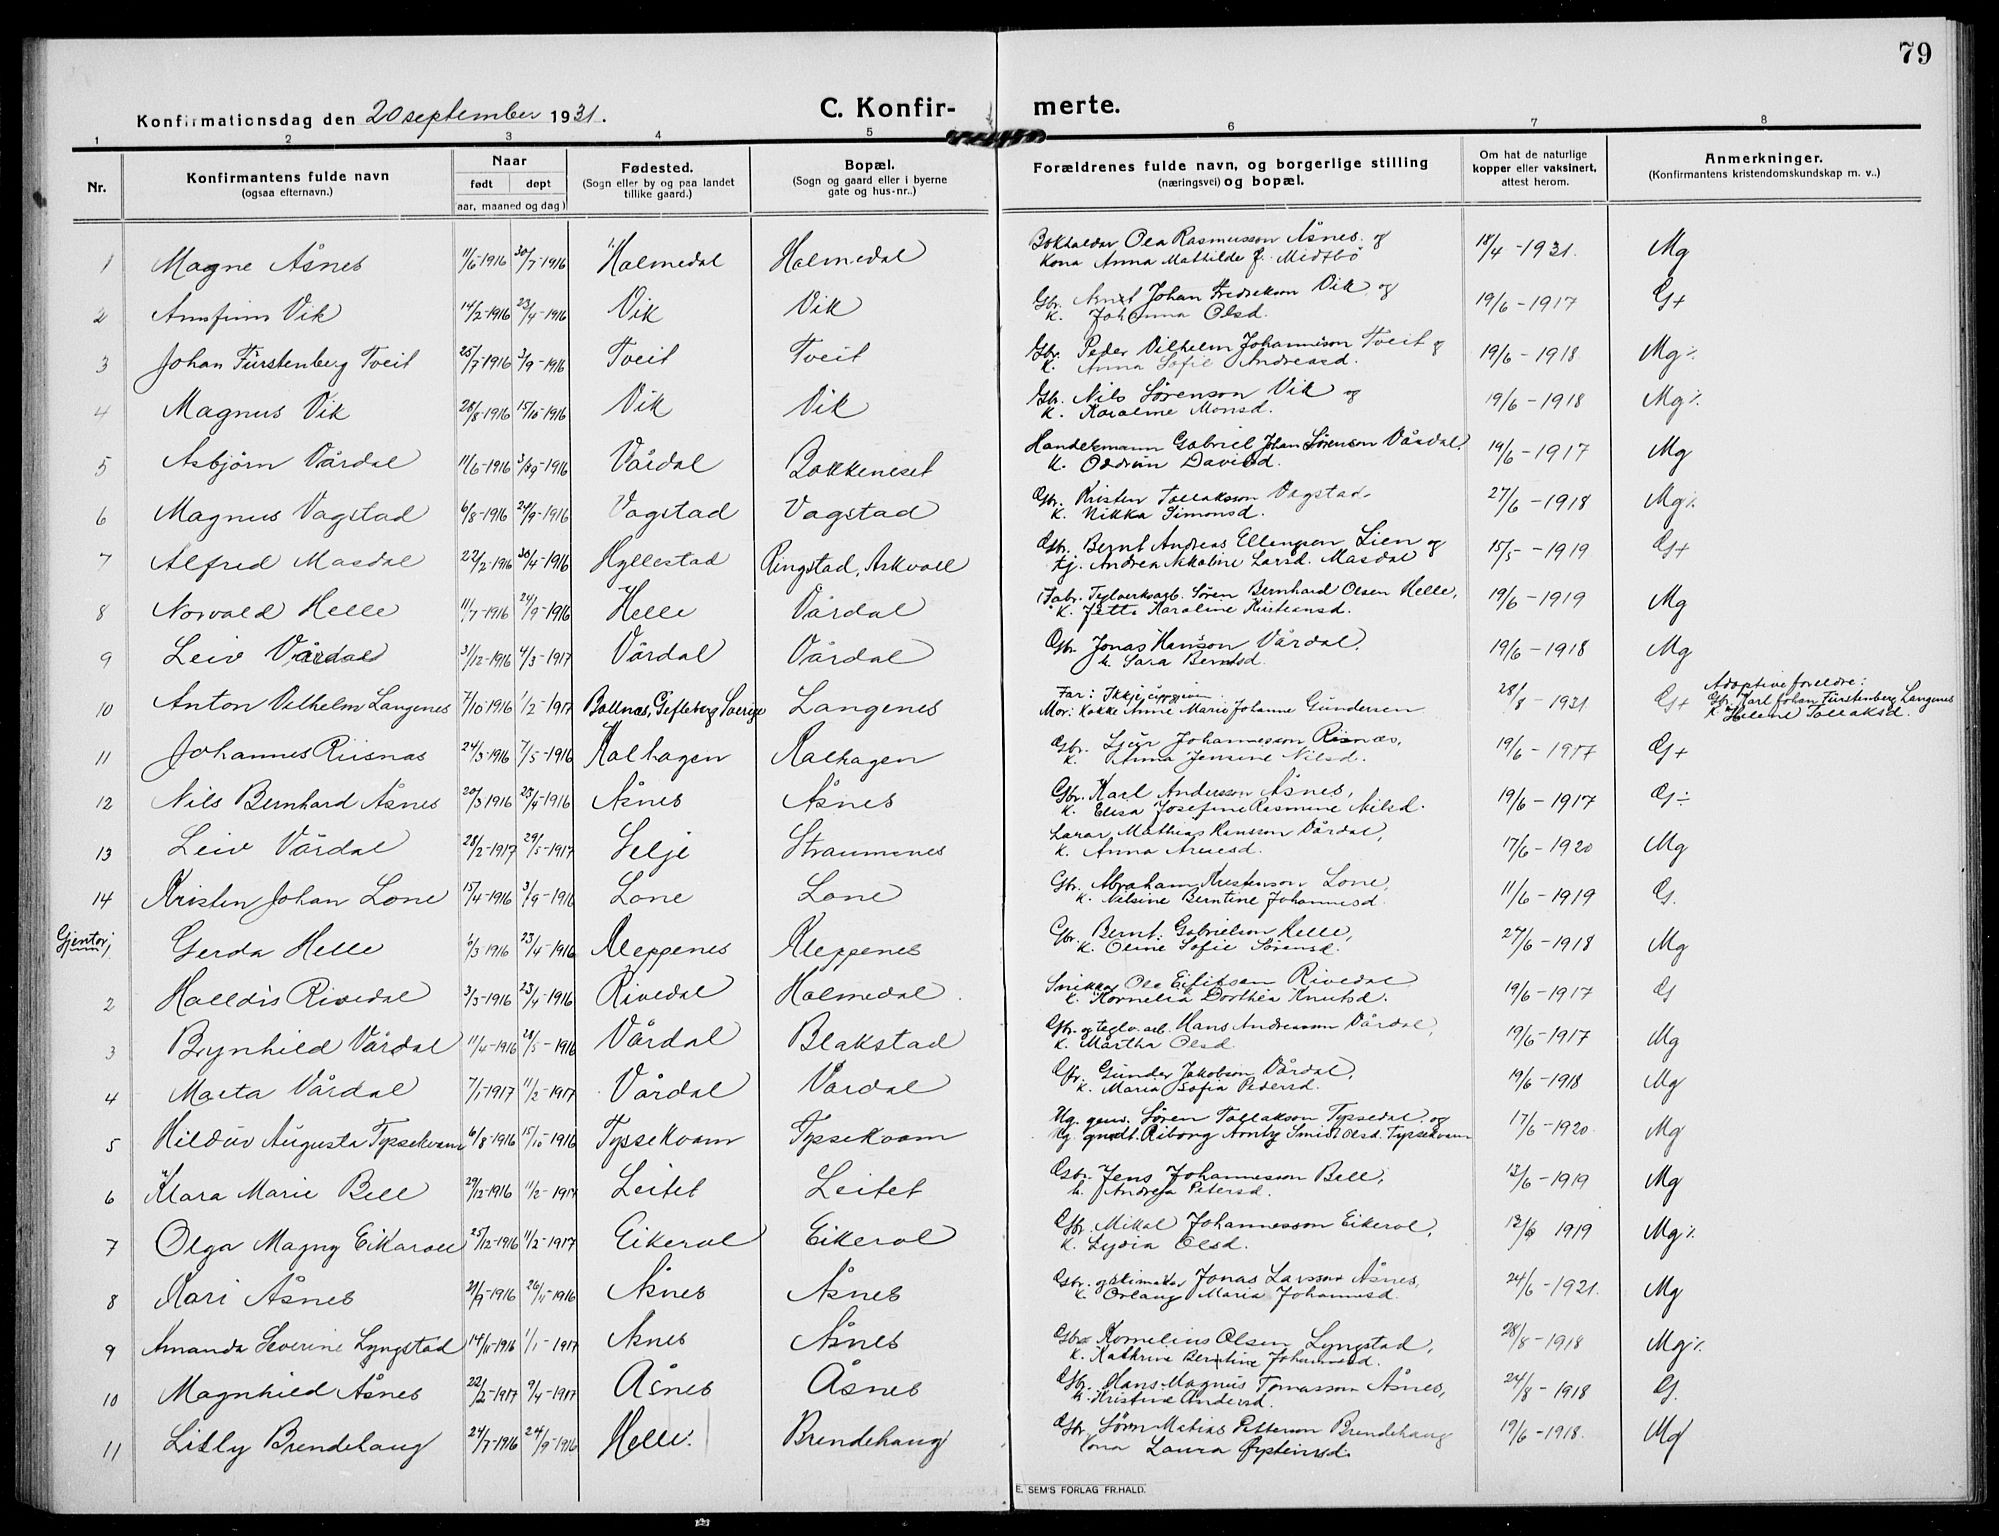 79
Konfirmationsdag den 20 september 1931.
C. Konfir- merte.
1 2 3 4 5 6 7 8
Nr.
Konfirmantens fulde navn
(ogsaa efternavn.)
Naar
født døpt
(aar, maaned og dag)
Fødested.
(Sogn eller by og paa landet
tillike gaard.)
Bopæl.
(Sogn og gaard eller i byerne
gate og hus-nr..)
Forældrenes fulde navn, og borgerlige stilling
(næringsvei) og bopæl.
Om hat de naturlige
kopper eller vaksinert,
attest herom.
Anmerkninger.
(Konfirmantens kristendomskundskap m. v..)
1 Magne Åsnes 11/6-1916 30/7-1916 Holmedal Holmedal Bokhaldar Ola Rasmusson Åsnes og 18/4-1931. Mg
Kona Anna Mathilde f. Midtbö
2 Arnfinn Vik 14/2-1916 23/4-1916 Vik Vik Gbr. Arnt Johan Fredrikson Vik og 19/6-1917 G+
K. Johanna Olsd.
3 Johan Fürstenberg Tveit 25/7-1916 3/9-1916 Tveit Tveit Gbr. Peder Vilhelm Johanneson Tveit og 19/6-1918 Mg%
K. Anna Sofie Andreasd.
4 Magnus Vik 28/8-1916 15/10-1916 Vik Vik Gbr. Nils Sørenson Vik og 19/6-1918 Mg%
K. Karoline Monsd.
5 Asbjörn Vårdal 11/6-1916 3/9-1916 Vårdal Bokkeneset Handelsmann Gabriel Johan Sørenson Vårdal, 19/6-1917 Mg
K. Oddrun Davidsd.
6 Magnus Vagstad 6/8-1916 24/9-1916 Vagstad Vagstad Gbr. Kristen Tollakson Vagstad 27/6-1918 Mg%
K. Nikka Simonsd.
7 Alfred Masdal 22/2-1916 30/4-1916 Hyllestad Ringstad, Askvoll Gbr. Bernt Andreas Ellengsen Lien og 15/5-1919 G+
tj. Andrea Nikoline Larsd. Masdal
8 Norvald Helle 11/7-1916 24/9-1916 Helle Vårdal Fabr. Teglverksarb. Søren Bernhard Olsen Helle, 19/6-1919 Mg
K. Jette Karoline Kristiansd.
9 Leiv Vårdal 31/12-1916 4/3-1917 Vårdal Vårdal Gbr. Jonas Hanson Vårdal, 19/6-1918 Mg
k. Sara Berntsd.
10 Anton Vilhelm Langenes 7/10-1916 1/2-1917 Bollnäs, Gefleborg Sverige Langenes Far: Ikkje uppgjeven 28/8-1931 G+ Adoptivforeldre:
Mor: Kokke Anne Marie Johanne Gundersen Gbr. Karl Johan Fürstenberg Langenes
K. Helene Tollaksd.
11 Johannes Riisnæs 24/3-1916 7/5-1916 Kalhagen Kalhagen Gbr. Sjur Johannesson Risnæs, 19/6-1917 G+
K. Anna Jensine Nilsd.
12 Nils Bernhard Åsnes 20/3-1916 23/4-1916 Åsnes Åsnes Gbr. Karl Andersson Åsnes, 19/6-1917 G÷
K. Elisa Josefine Rasmine Nilsd.
13 Leiv Vårdal 28/2-1917 29/5-1917 Selje Straumenes Lærar Mathias Hansson Vårdal, 17/6-1920 Mg
K. Anna Arnesd.
14 Kristen Johan Lone 15/4-1916 3/9-1916 Lone Lone Gbr. Abraham Kristenson Lone, 11/6-1919 G.
K. Nilsine Berntine Johannesd.
Gjentor:
Gerda Helle 6/3 1916 23/4-1916 Kleppenes Kleppenes Gbr. Bernt Gabrielson Helle, 27/6-1918 Mg
K. Oline Sofie Sørensd.
2 Halldis Rivedal 3/3-1916 23/4-1916 Rivedal Holmedal Snikkar Ole Rivedal 19/6-1917 G
K. Kornelia Dorthea Knutsd.
3 Brynhild Vårdal 11/4-1916 28/5-1916 Vårdal Blakstad Gbr. og teglv. arb. Hans Andreasson Vårdal, 19/6-1917 Mg
K. Martha Olsd.
4 Marta Vårdal 7/1-1917 11/2-1917 Vårdal Vårdal Gbr. Gunder Jakobson Vårdal, 19/6-1918 Mg
K. Maria Sofia Pedersd.
5 Hildur Augusta Tyssekvam 6/8-1916 15/10-1916 Tyssekvam Tyssekvam Ug. gens. Søren Tollakson Tyssedal og 17/6-1920 Mg
Ug. Riborg Smidt Olsd. Tyssekvam
6 Klara Marie Bell 29/12-1916 11/2-1917 Leitet Leitet Gbr. Jens Johannesson Bell, 13/6-1919 Mg
k. Andrea Petersd.
7 Olga Magny Eikaroll 25/12-1916 11/2-1917 Eikerol Eikerol Gbr. Mikal Johannesson Eikerol, 12/6 1919 Mg%
K. Lydia Olsd.
8 Kari Åsnes 21/9-1916 26/11-1916 Åsnes Åsnes Gbr. og skimaker Jonas Larsson Åsnes, 24/6-1921. Mg
K. Orlaug Maria Johannesd.
9 Amanda Severine Lyngstad 14/11-1916 1/1-1917 Åsnes Åsnes Gbr. Kornelius Olsen Lyngstad, 28/8-1918 Mg%
K. Kathrine Berntine Johannesd.
10 Magnhild Åsnes 22/2-1917 9/4-1917 Åsnes Åsnes Gbr. Hans Magnus Tomasson Åsnes, 24/8-1918 G.
k. Kristine Andersd.
11 Lilly Brendehaug 24/7-1916 24/9-1916 Helle. Brendehaug Gbr. Søren Matias Petterson Brendehaug 19/6-1918. Mg
Kona Laura Øysteinsd.
E. SEM'S FORLAG FR.HALD.